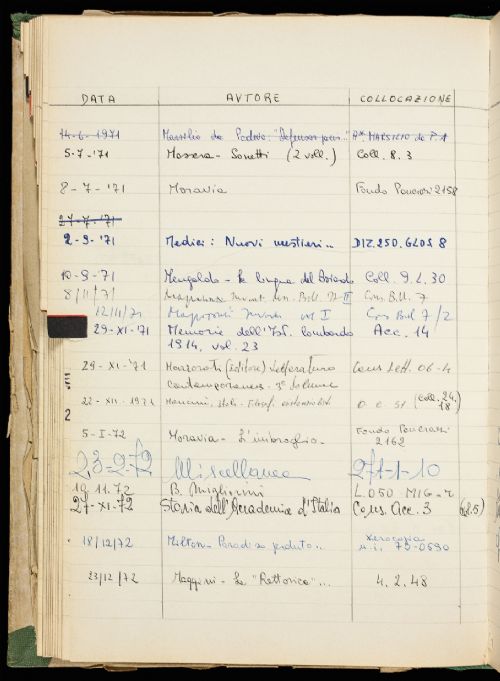 DATA AVTORE COLLOCAZIONE
14-6-1971 Marsilio da Padova: "Defensor pacis..." R* MARSILIO da P. 1
5-7-'71 Massera - Sonetti (2 voll.) Coll. 8.3
8-7-'71 Moravia Fondo Pancrazi 2158
27-7-'71
2-9-'71 Medici: Nuovi mestieri.. DIZ.250.GLOS 8
10-9-'71 Mengaldo - La lingua del Boiardo Coll. 9.L.30
8/11/71 II Cons. Bibl. 7
12/11/71 I Cons Bibl 7/2
29-XI-'71 Memorie dell'Ist. lombardo Acc. 14
1914, vol. 23
29-XI-'71 Manzorati (editore) Letteratura Cons Lett. 06-4
contemporanea - 3° volume
22-XII-1971 Mancini, (Coll. 24.
18)
5-I-72 Moravia - L'imbroglio. Fondo Pancrazi
2162
23-2-72 Miscellanea 271-1-10
10.11.72 B. Migliorini L.050 MIG-7
27-XI-72 Storia dell'Accademia d'Italia Cons. Acc. 3
18/12/72 Milton - Paradiso perduto.. xerocopia
n.i. 75-0690
23/12/72 Maggini - La "Rettorica"... 4.2.48